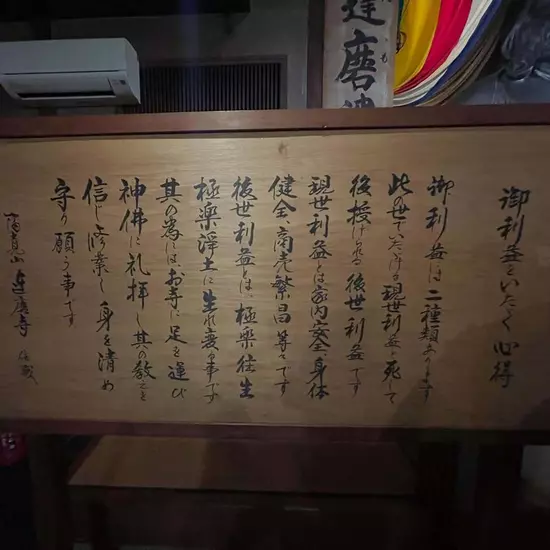 達磨
御利益をいたゞく心得
御利益は二種類あります
此の世でいたゞける現世利益と死して
後授けられる後世利益です
現世利益とは家内安全、身体
健全、商売繁昌等々です
後世利益とは、極楽往生
極楽浄土に生れ変る事です
其の為にはお寺に足を運び
神佛に礼拝し其の教えを
信じ修業し身を清め
守り願う事です
達磨寺